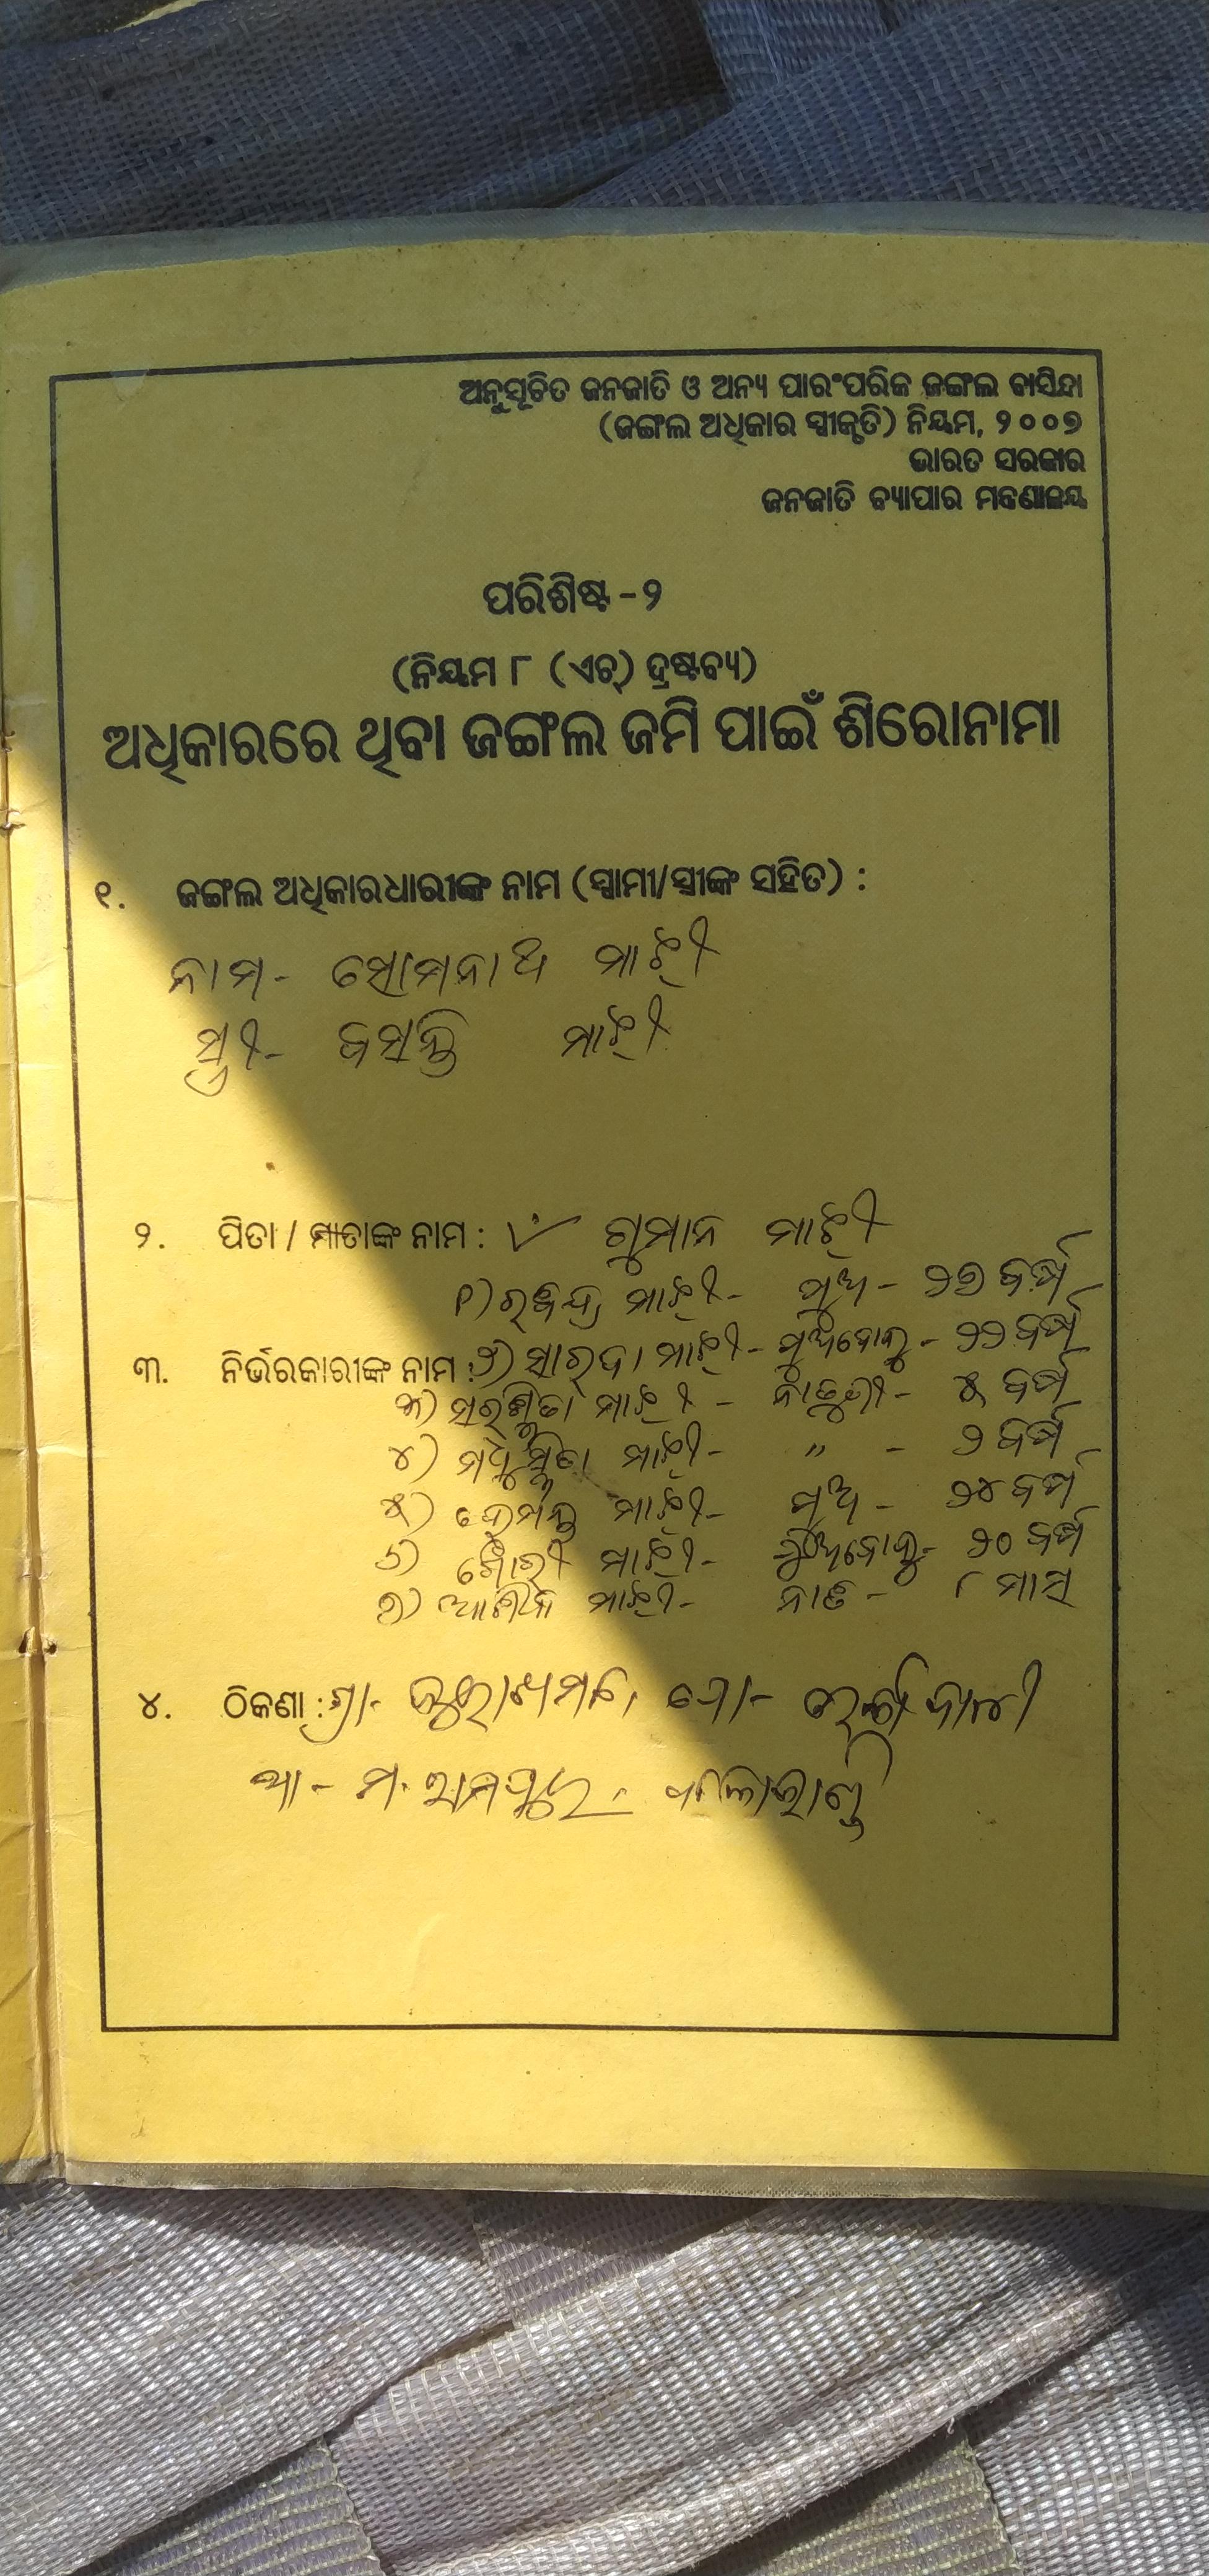 ଅନୁସୂଚିତ ଜନଜାତି ଓ ଅନ୍ୟ ପାରଂପରିକ ଜଙ୍ଗଲ ବାସିନ୍ଦା
(ଜଙ୍ଗଲ ଅଧିକାର ସ୍ୱୀକୃତି) ନିୟମ, ୨୦୦୭
ଭାରତ ସରକାର
ଜନଜାତି ବ୍ୟାପାର ମନ୍ତ୍ରଣାଳୟ
ପରିଶିଷ୍ଟ -୨
(ନିୟମ ୮ (ଏଚ୍) ଦ୍ରଷ୍ଟବ୍ୟ)
ଅଧିକାରରେ ଥିବା ଜଙ୍ଗଲ ଜମି ପାଇଁ ଶିରୋନାମା
୧. ଜଙ୍ଗଲ ଅଧିକାରଧାରୀଙ୍କ ନାମ (ସ୍ୱାମୀ/ସ୍ତ୍ରୀଙ୍କ ସହିତ) :
ନାମ- ସୋମନାଥ ମାଝୀ
ସ୍ତ୍ରୀ- ବସନ୍ତି ମାଝୀ
୨. ପିତା / ମାତାଙ୍କ ନାମ : ଗୁମାନ ମାଝୀ
୧) ରବିନ୍ଦ୍ର ମାଝୀ- ପୁଅ - ୨୭ ବର୍ଷ
୩. ନିର୍ଭରକାରୀଙ୍କ ନାମ : ୨) ସାରଦା ମାଝୀ- ପୁଅବୋହୁ - ୨୨ ବର୍ଷ
୩) ମାଝୀ - ନାତୁଣୀ - ୫ ବର୍ଷ
୪) ମଧୁସ୍ମିତା ମାଝୀ- " - ୨ ବର୍ଷ
୫) ହେମନ୍ତ ମାଝୀ- ପୁଅ - ୨୪ ବର୍ଷ
୬) ଗୌରୀ ମାଝୀ- ପୁଅବୋହୁ- ୨୦ ବର୍ଷ
୭) ମାଝୀ- ନାତି - ୮ ମାସ
୪. ଠିକଣା : ଗ୍ରା- ପୋ-
ଥା- ମ. ରାମପୁର - କଳାହାଣ୍ଡି